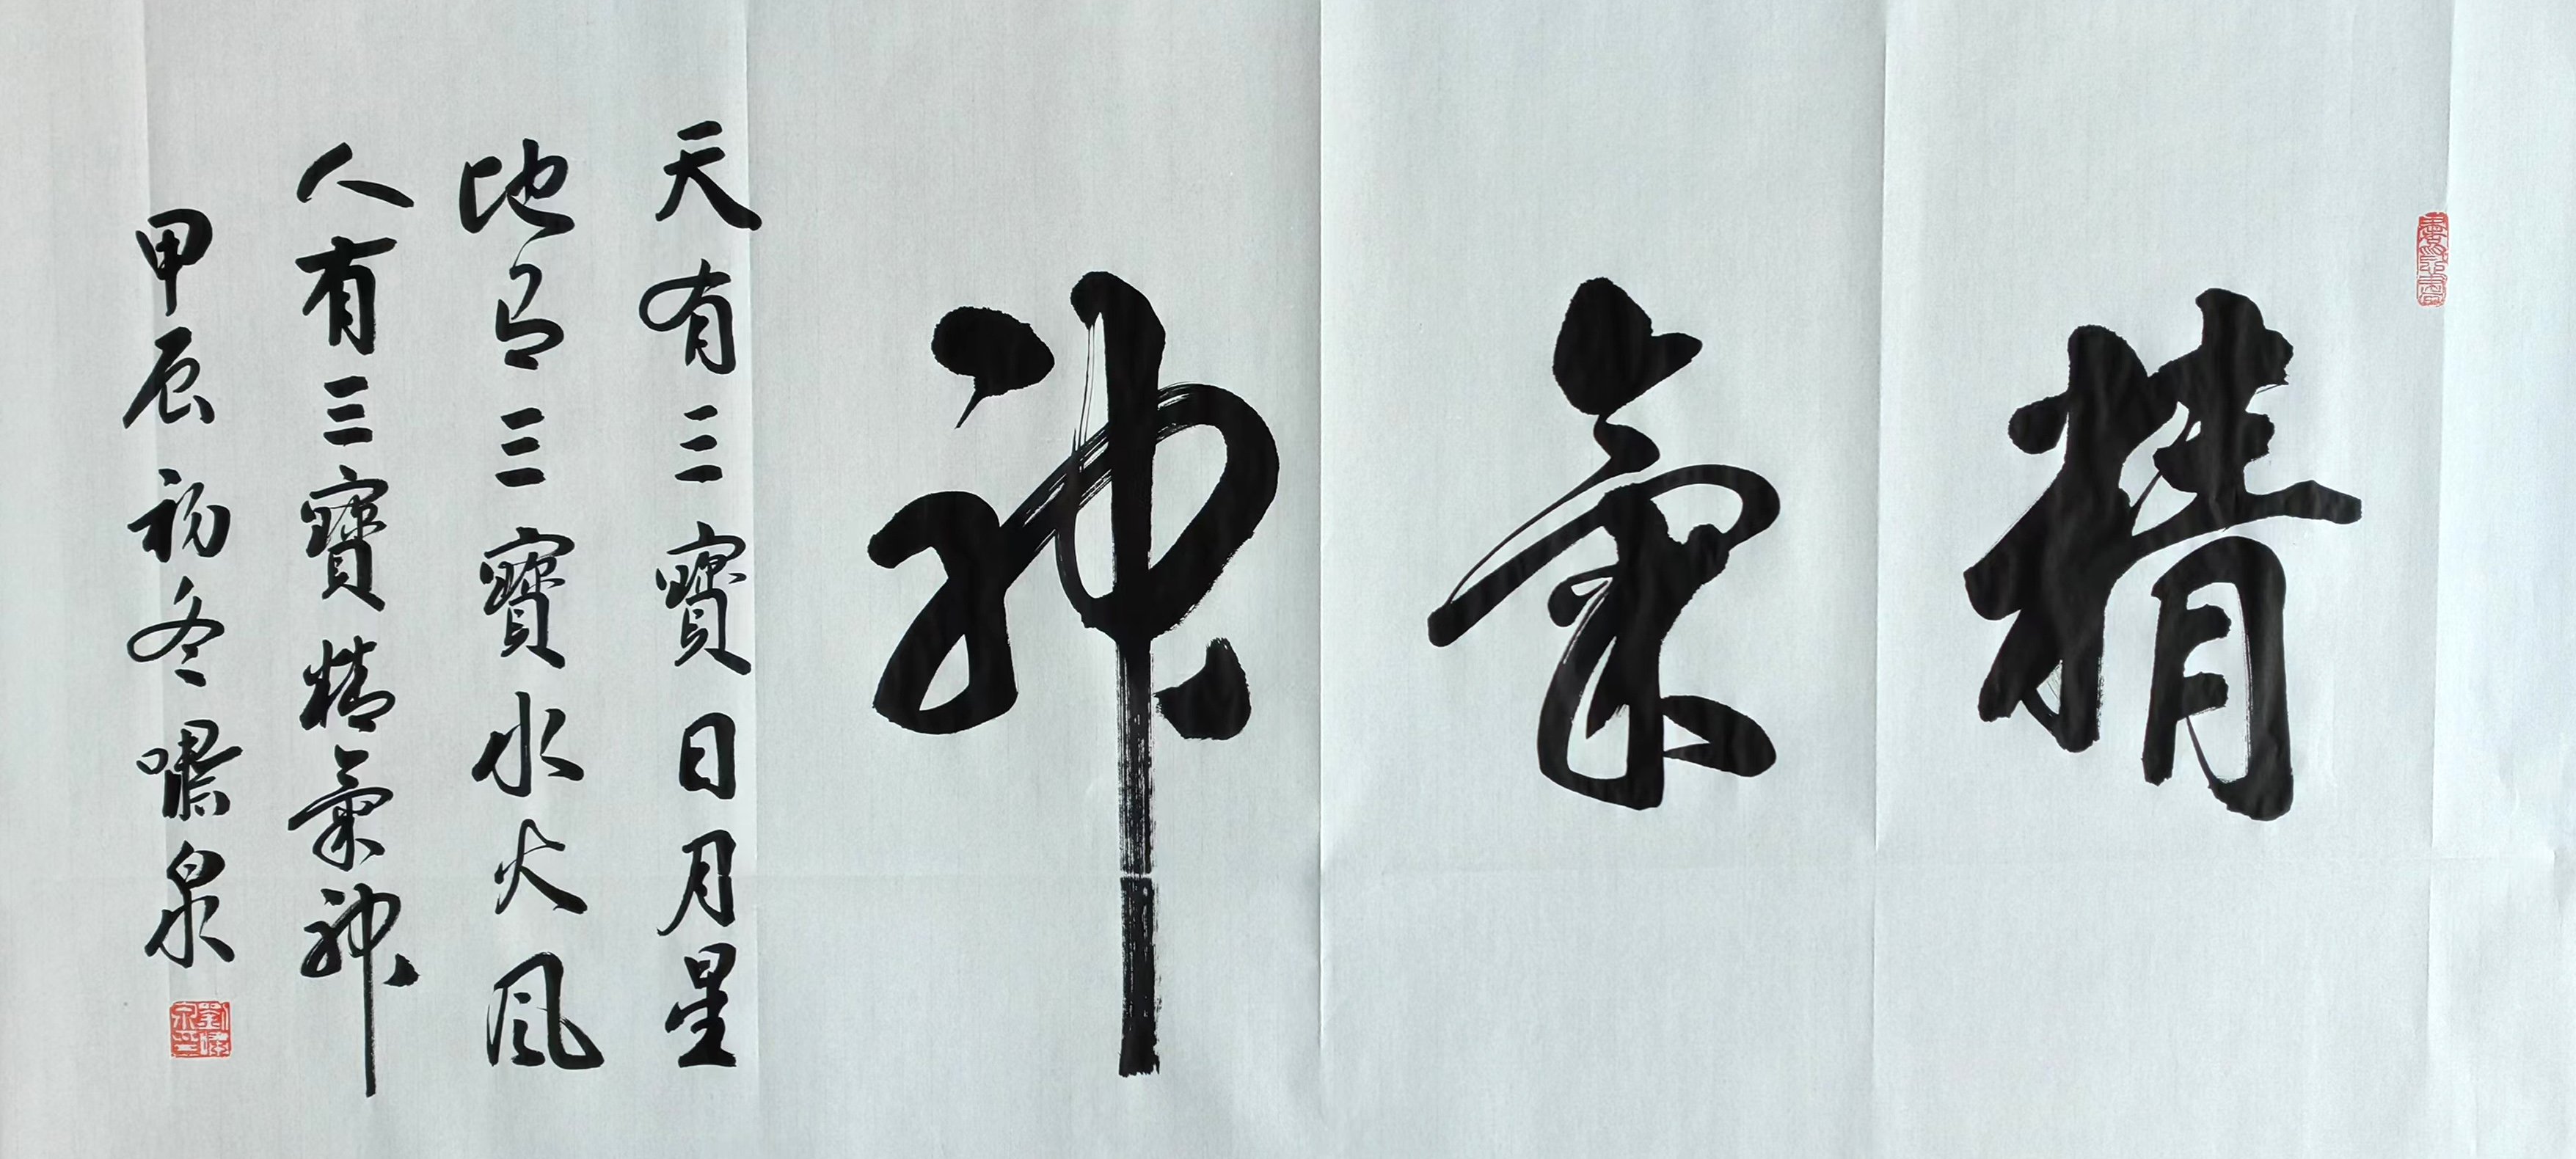 精氣神
天有三寶日月星
地有三寶水火風
人有三寶精氣神
甲辰初冬嘯泉